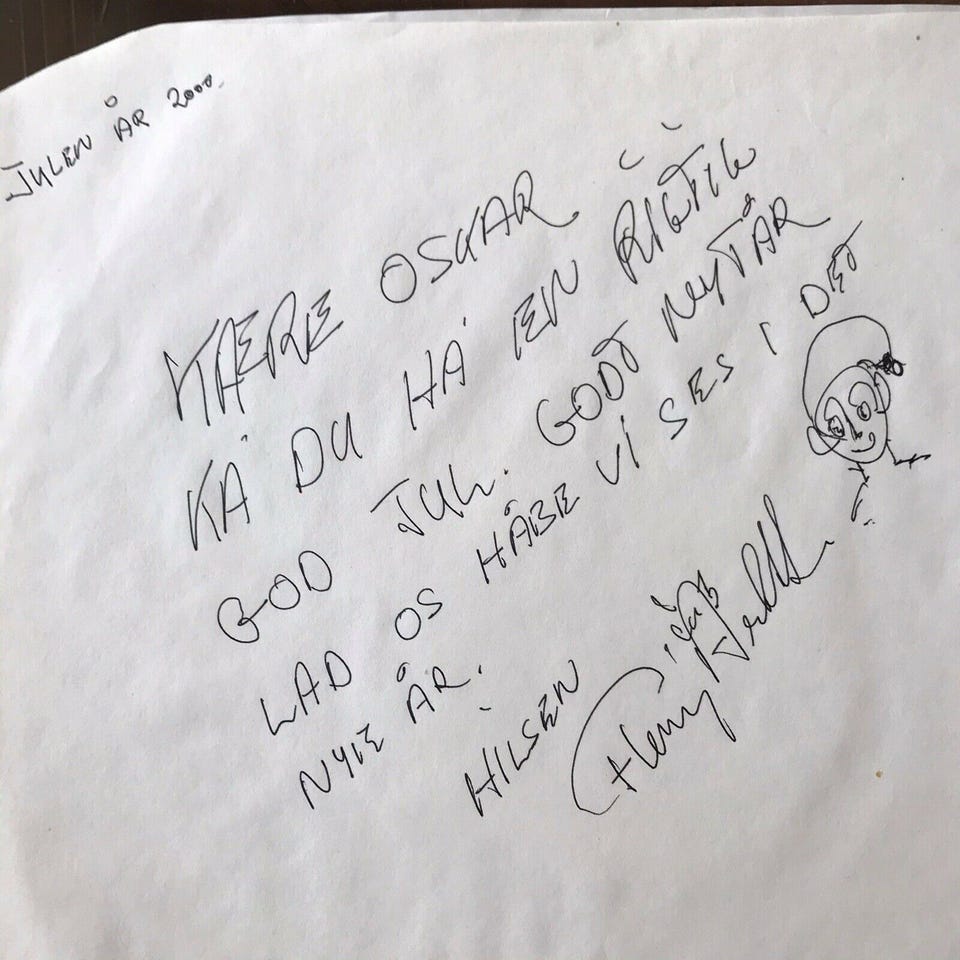 JULEN ÅR 2000.
KÆRE OSKAR
KA' DU HA' EN RIGTIG
GOD JUL. GODT NYTÅR
LAD OS HÅBE VI SES I DET
NYIE ÅR.
HILSEN
Flemming